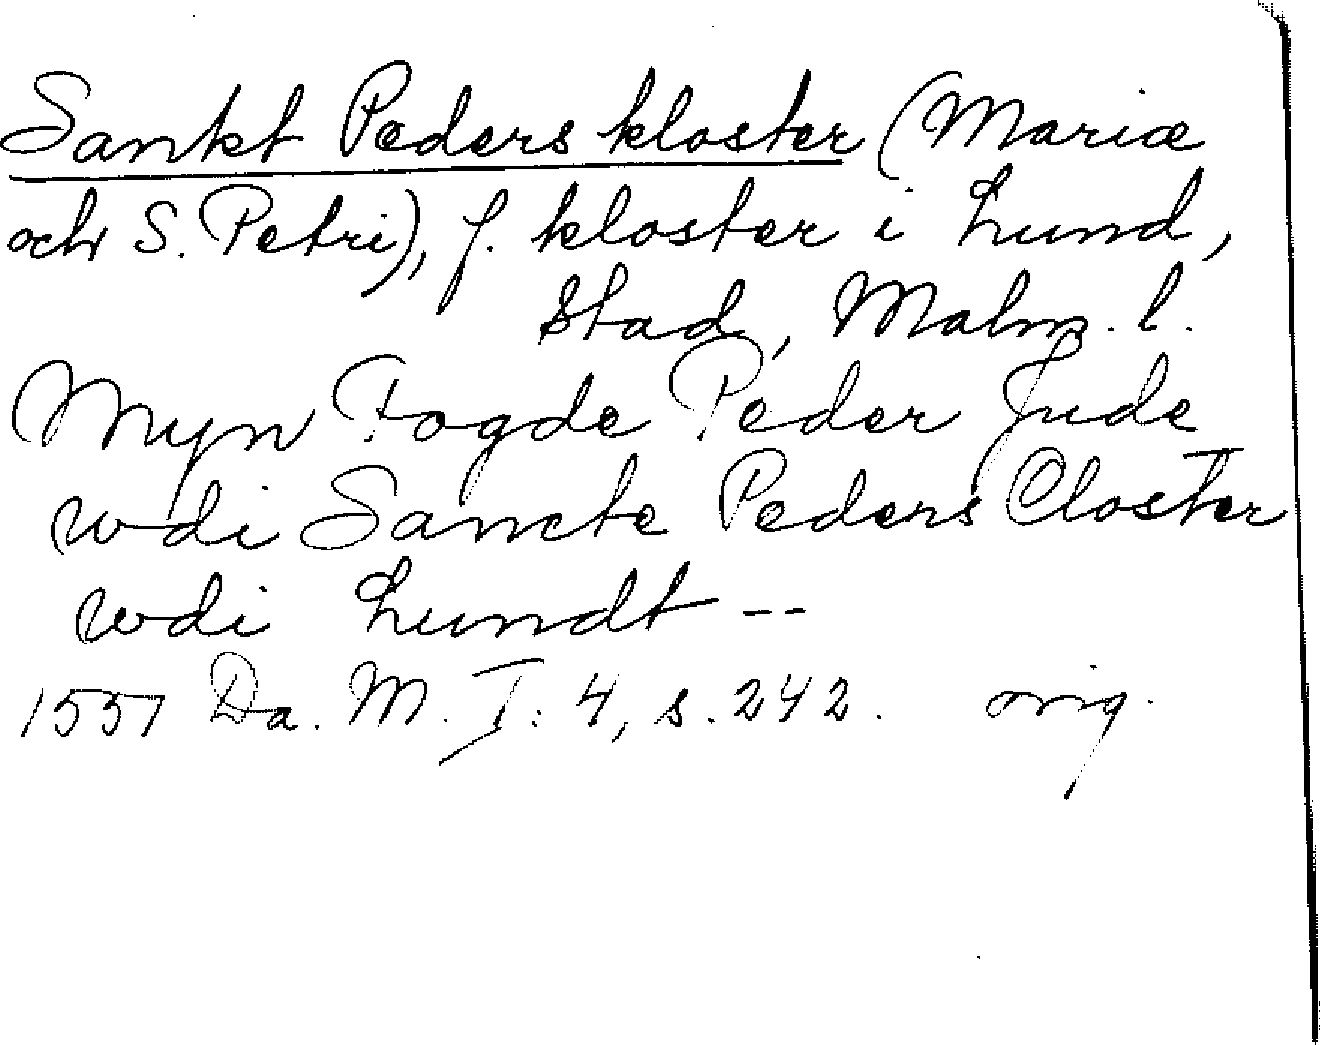 Sankt Peders kloster (Mariæ
och S. Petri), f. kloster i Lund,
stad, Malm. l.
Myn Fogde Peder Jude
wdi Sancte Peders Closter
wdi Lundt --
1557 Da. M. I: 4, s. 242. orig.